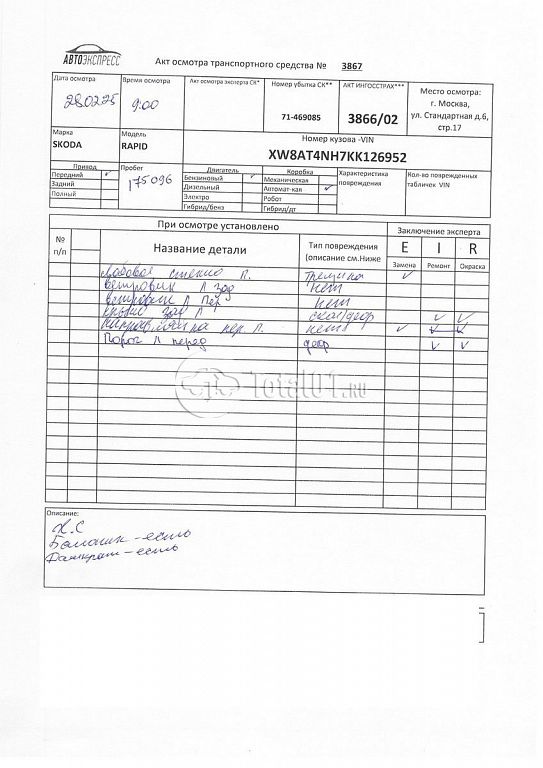 АВТОЭКСПРЕСС
Акт осмотра транспортного средства № 3867
Дата осмотра
28.02.25
Время осмотра
9:00
Акт осмотра эксперта СВ*
Номер убытка СК**
71-469085
АКТ ИНГОССТРАХ***
3866/02
Место осмотра:
г. Москва,
ул. Стандартная д.6,
стр.17
Марка
SKODA
Модель
RAPID
Номер кузова -VIN
XW8AT4NH7KK126952
Привод
Передний ✓
Задний
Полный
Пробег
175096
Двигатель
Бензиновый ✓
Дизельный
Электро
Гибрид/бенз
Коробка
Механическая
Автомат-кая ✓
Робот
Гибрид/дт
Характеристика
повреждения
Кол-во поврежденных
табличек VIN
При осмотре установлено
Заключение эксперта
№
п/п
Название детали
Тип повреждения
(описание см.Ниже
E I R
Замена Ремонт Окраска
Лобовое стекло П. трещина ✓
Ветровик Л зад нет
Ветровик Л Пер нет
Крыло зад Л скол/деф ✓ ✓
пер. Л. нет ✓ ✓ ✓
Порог Л перед деф ✓ ✓
Total01.RU
Описание:
К.С
Балонник-есть
Домкрат-есть